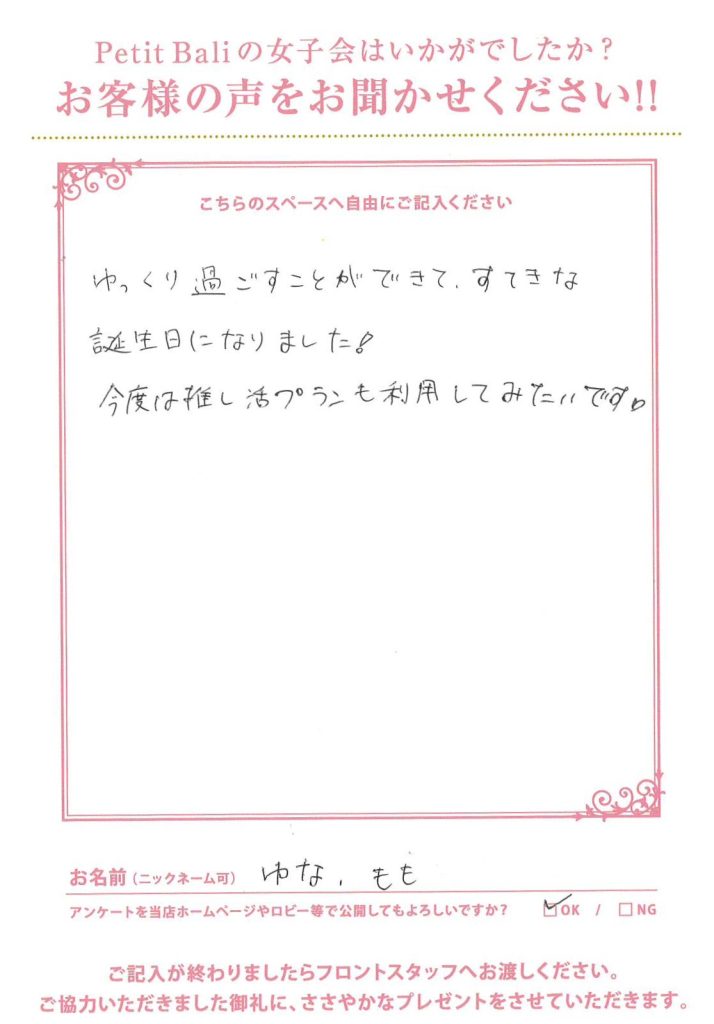 Petit Baliの女子会はいかがでしたか？
お客様の声をお聞かせください!!
こちらのスペースへ自由にご記入ください
ゆっくり過ごすことができて、すてきな
誕生日になりました!
今度は推し活プランも利用してみたいです。
お名前（ニックネーム可） ゆな、もも
アンケートを当店ホームページやロビー等で公開してもよろしいですか？ ☑OK / □NG
ご記入が終わりましたらフロントスタッフへお渡しください。
ご協力いただきました御礼に、ささやかなプレゼントをさせていただきます。